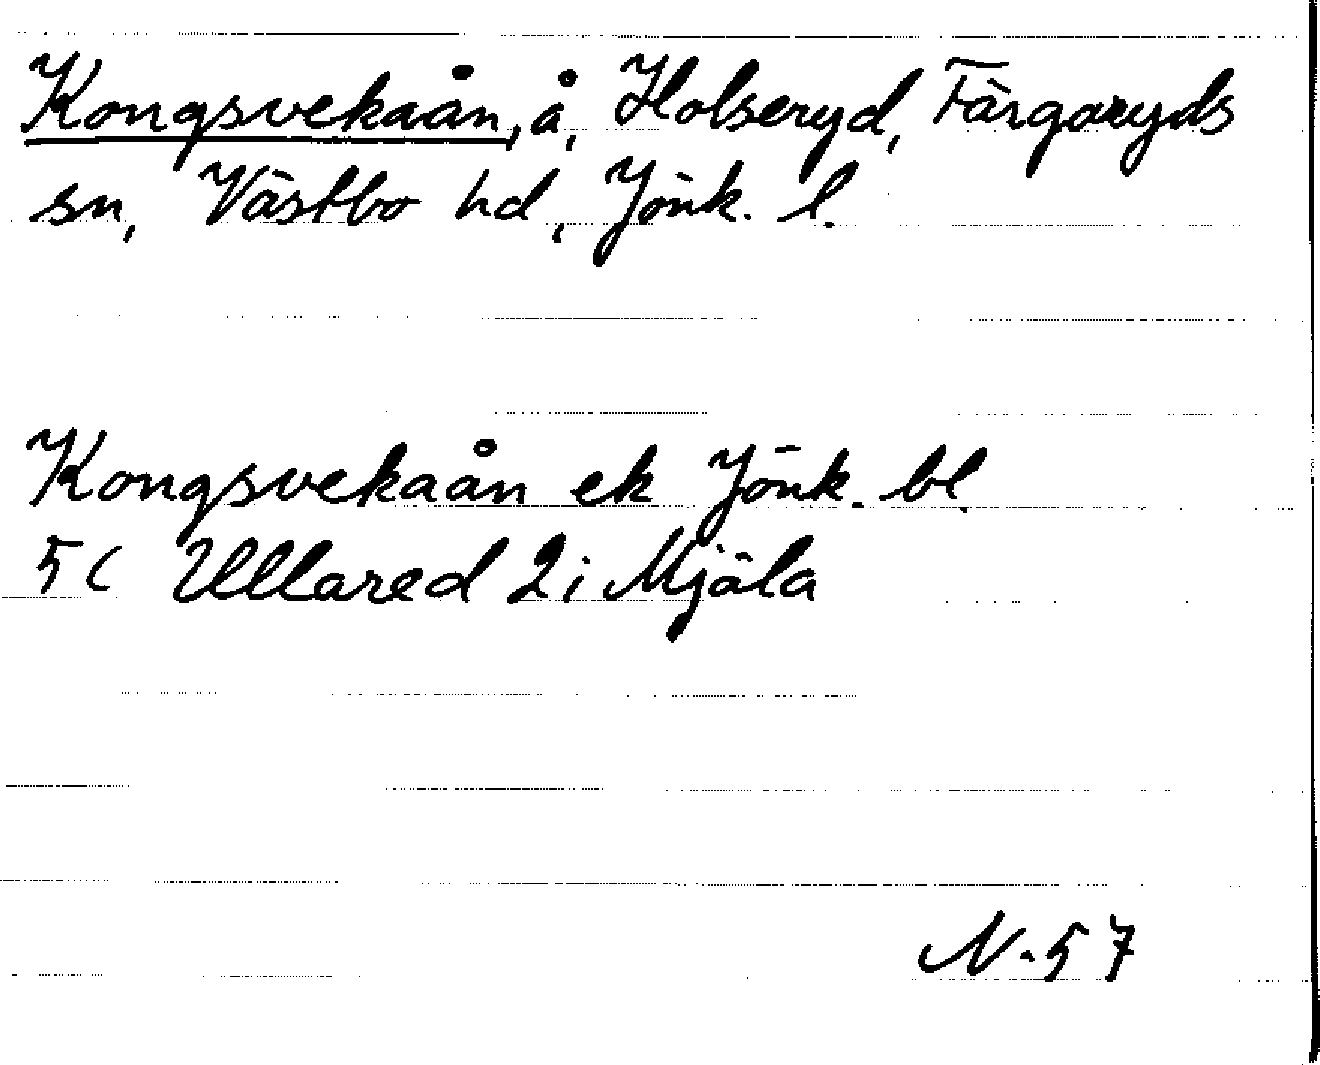 Kongsvekaån, å, Holseryd, Färgaryds
sn, Västbo hd, Jönk. l.
Kongsvekaån ek Jönk. bl.
5 C Ullared 2 i Mjäla
N. 57